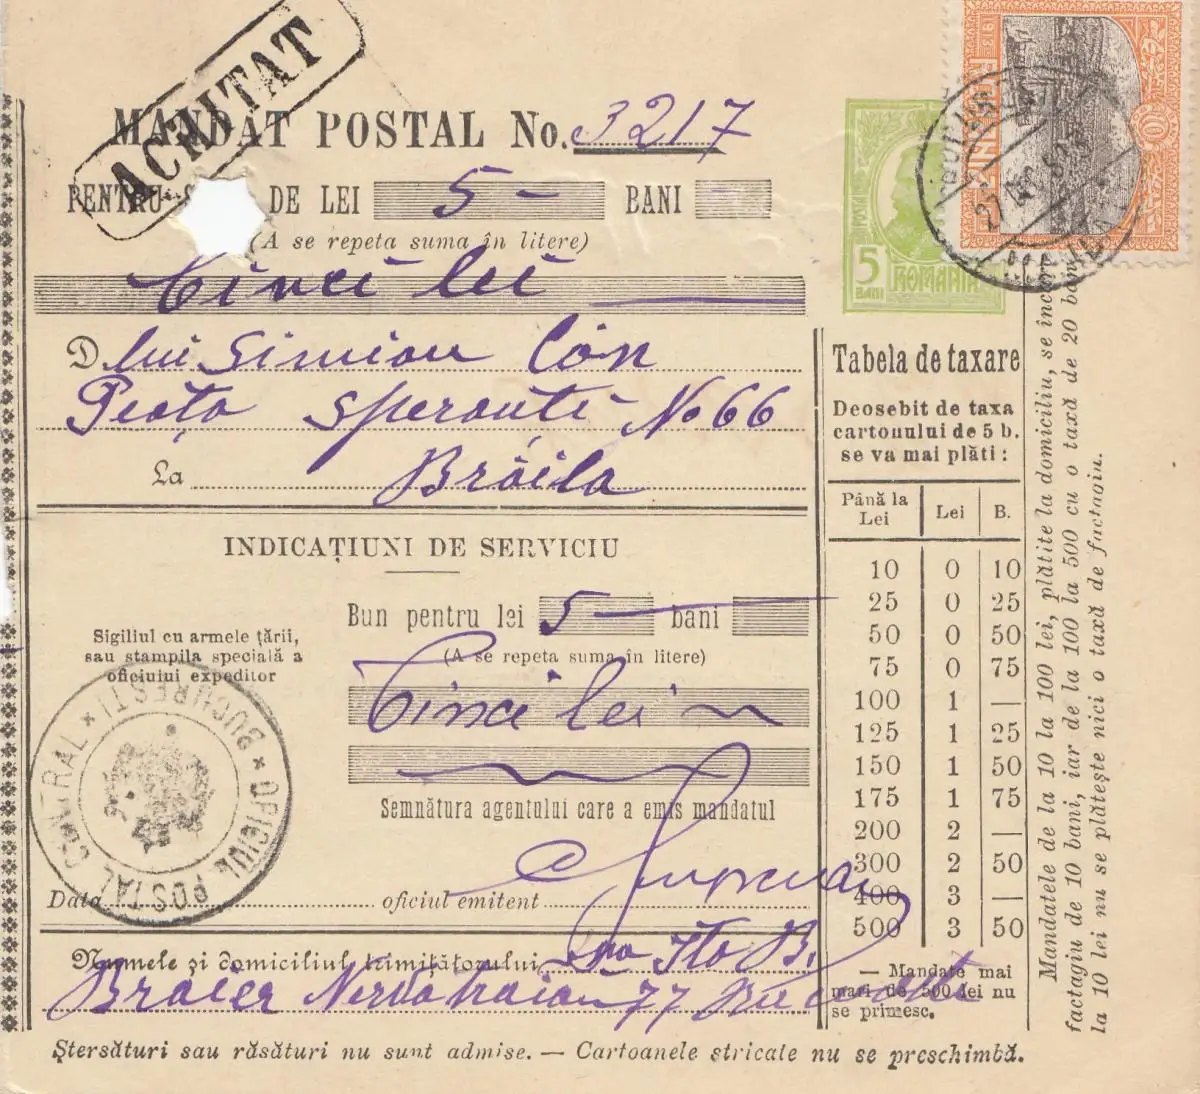 ACHITAT
MANDAT POSTAL No. 3217
PENTRU DE LEI 5 - BANI -
(A se repeta suma în litere)
Cinci lei
D lui Simion Con
Peata Speranti No 66
La Brăila
INDICAȚIUNI DE SERVICIU
Bun pentru lei 5 - bani
(A se repeta suma în litere)
Cinci lei
Sigiliul cu armele țării,
sau stampila specială a
oficiului expeditor
OFICIUL POSTAL CENTRAL * BUCURESTI *
Semnătura agentului care a emis mandatul
Data oficiul emitent
Numele și domiciliul trimițătorului
Braier Nerva Traian 77
Ștersături sau răsături nu sunt admise. — Cartoanele stricate nu se preschimbă.
5
BANI
ROMANIA
1913
10
Tabela de taxare
Deosebit de taxa
cartonului de 5 b.
se va mai plăti :
Până la Lei Lei B.
10 0 10
25 0 25
50 0 50
75 0 75
100 1 —
125 1 25
150 1 50
175 1 75
200 2 —
300 2 50
400 3 —
500 3 50
— Mandate mai
mari de 500 lei nu
se primesc.
Mandatele de la 10 la 100 lei, plătite la domiciliu, se
factagiu de 10 bani, iar de la 100 la 500 cu o taxă de 20 ban
la 10 lei nu se plătește nici o taxă de factagiu.